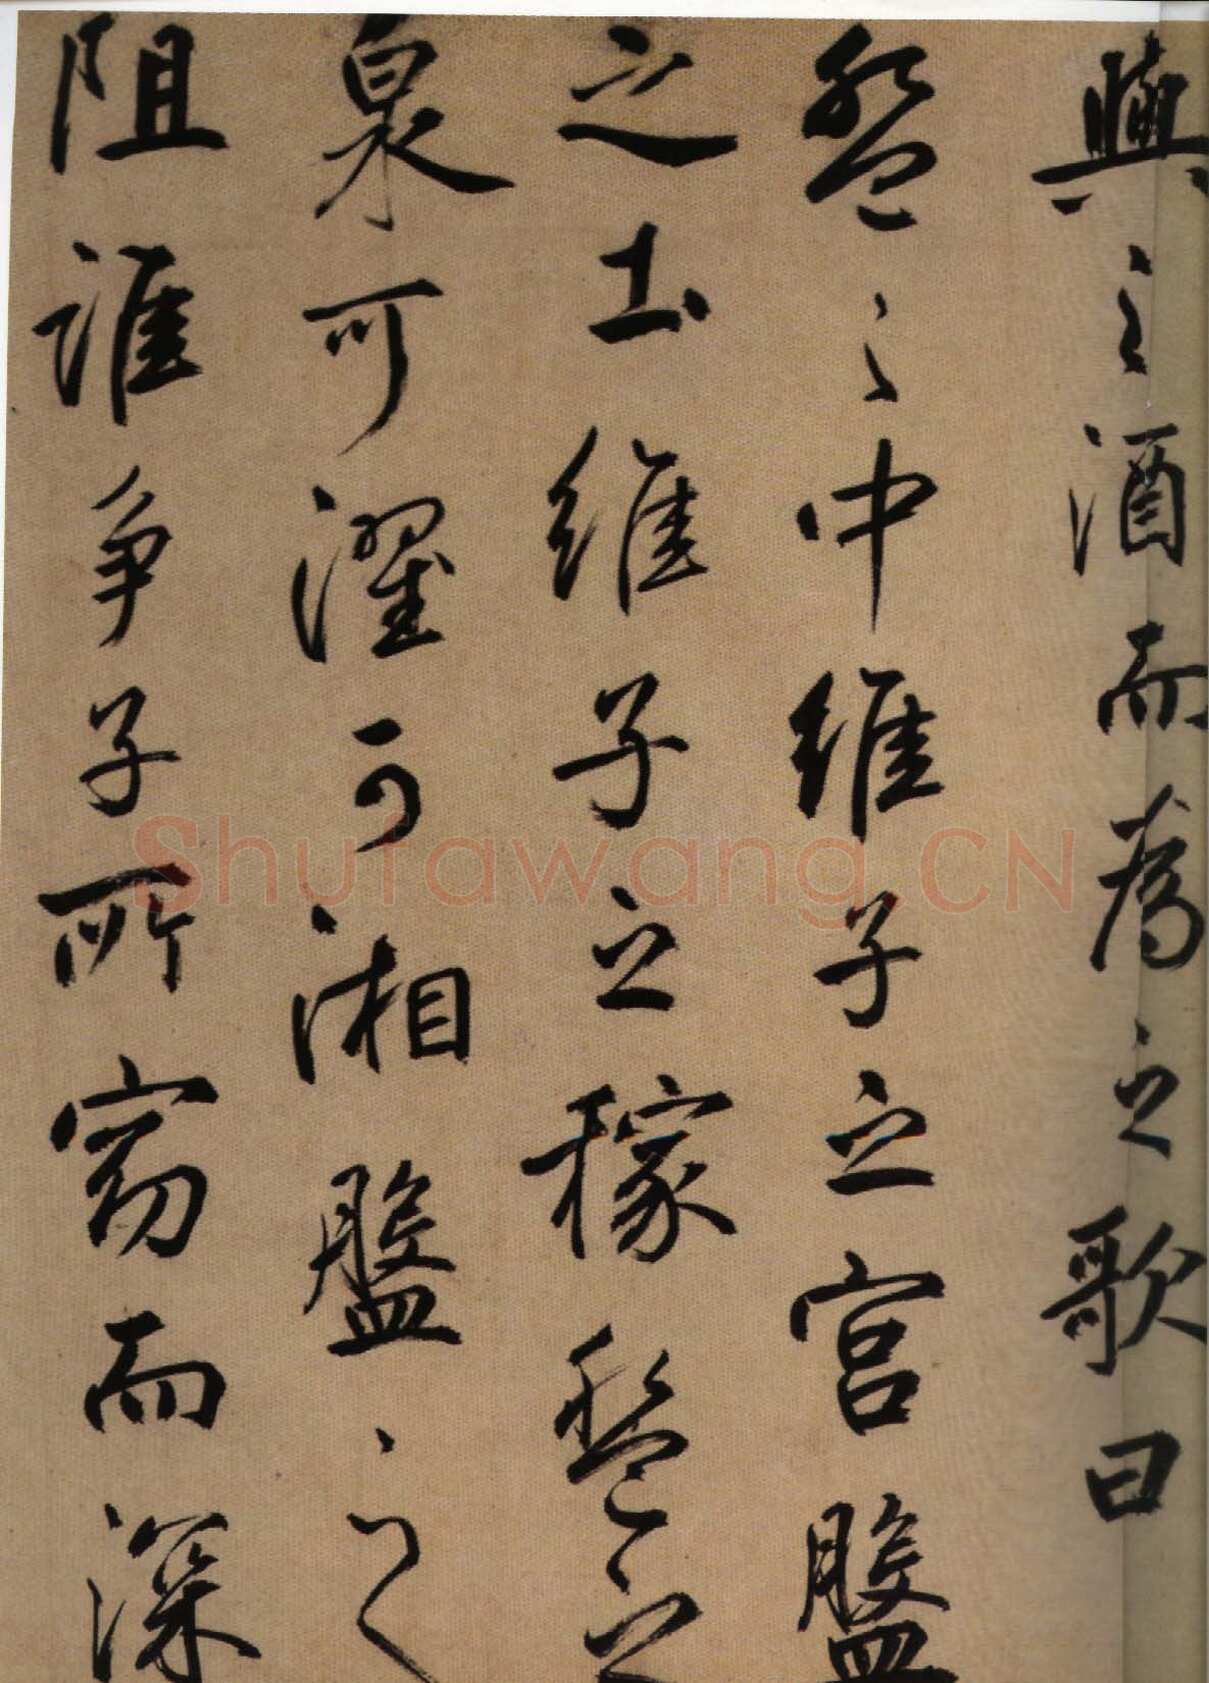 與之酒而為之歌曰
盤之中維子之宮盤
之土維子之稼盤之
泉可濯可湘盤之
阻誰爭子所窈而深
Shufawang.CN